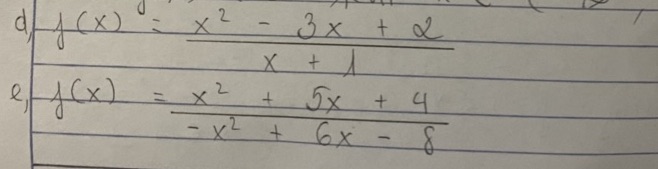 d, f(x) = x² - 3x + 2
x + 1
e, f(x) = x² + 5x + 4
-x² + 6x - 8